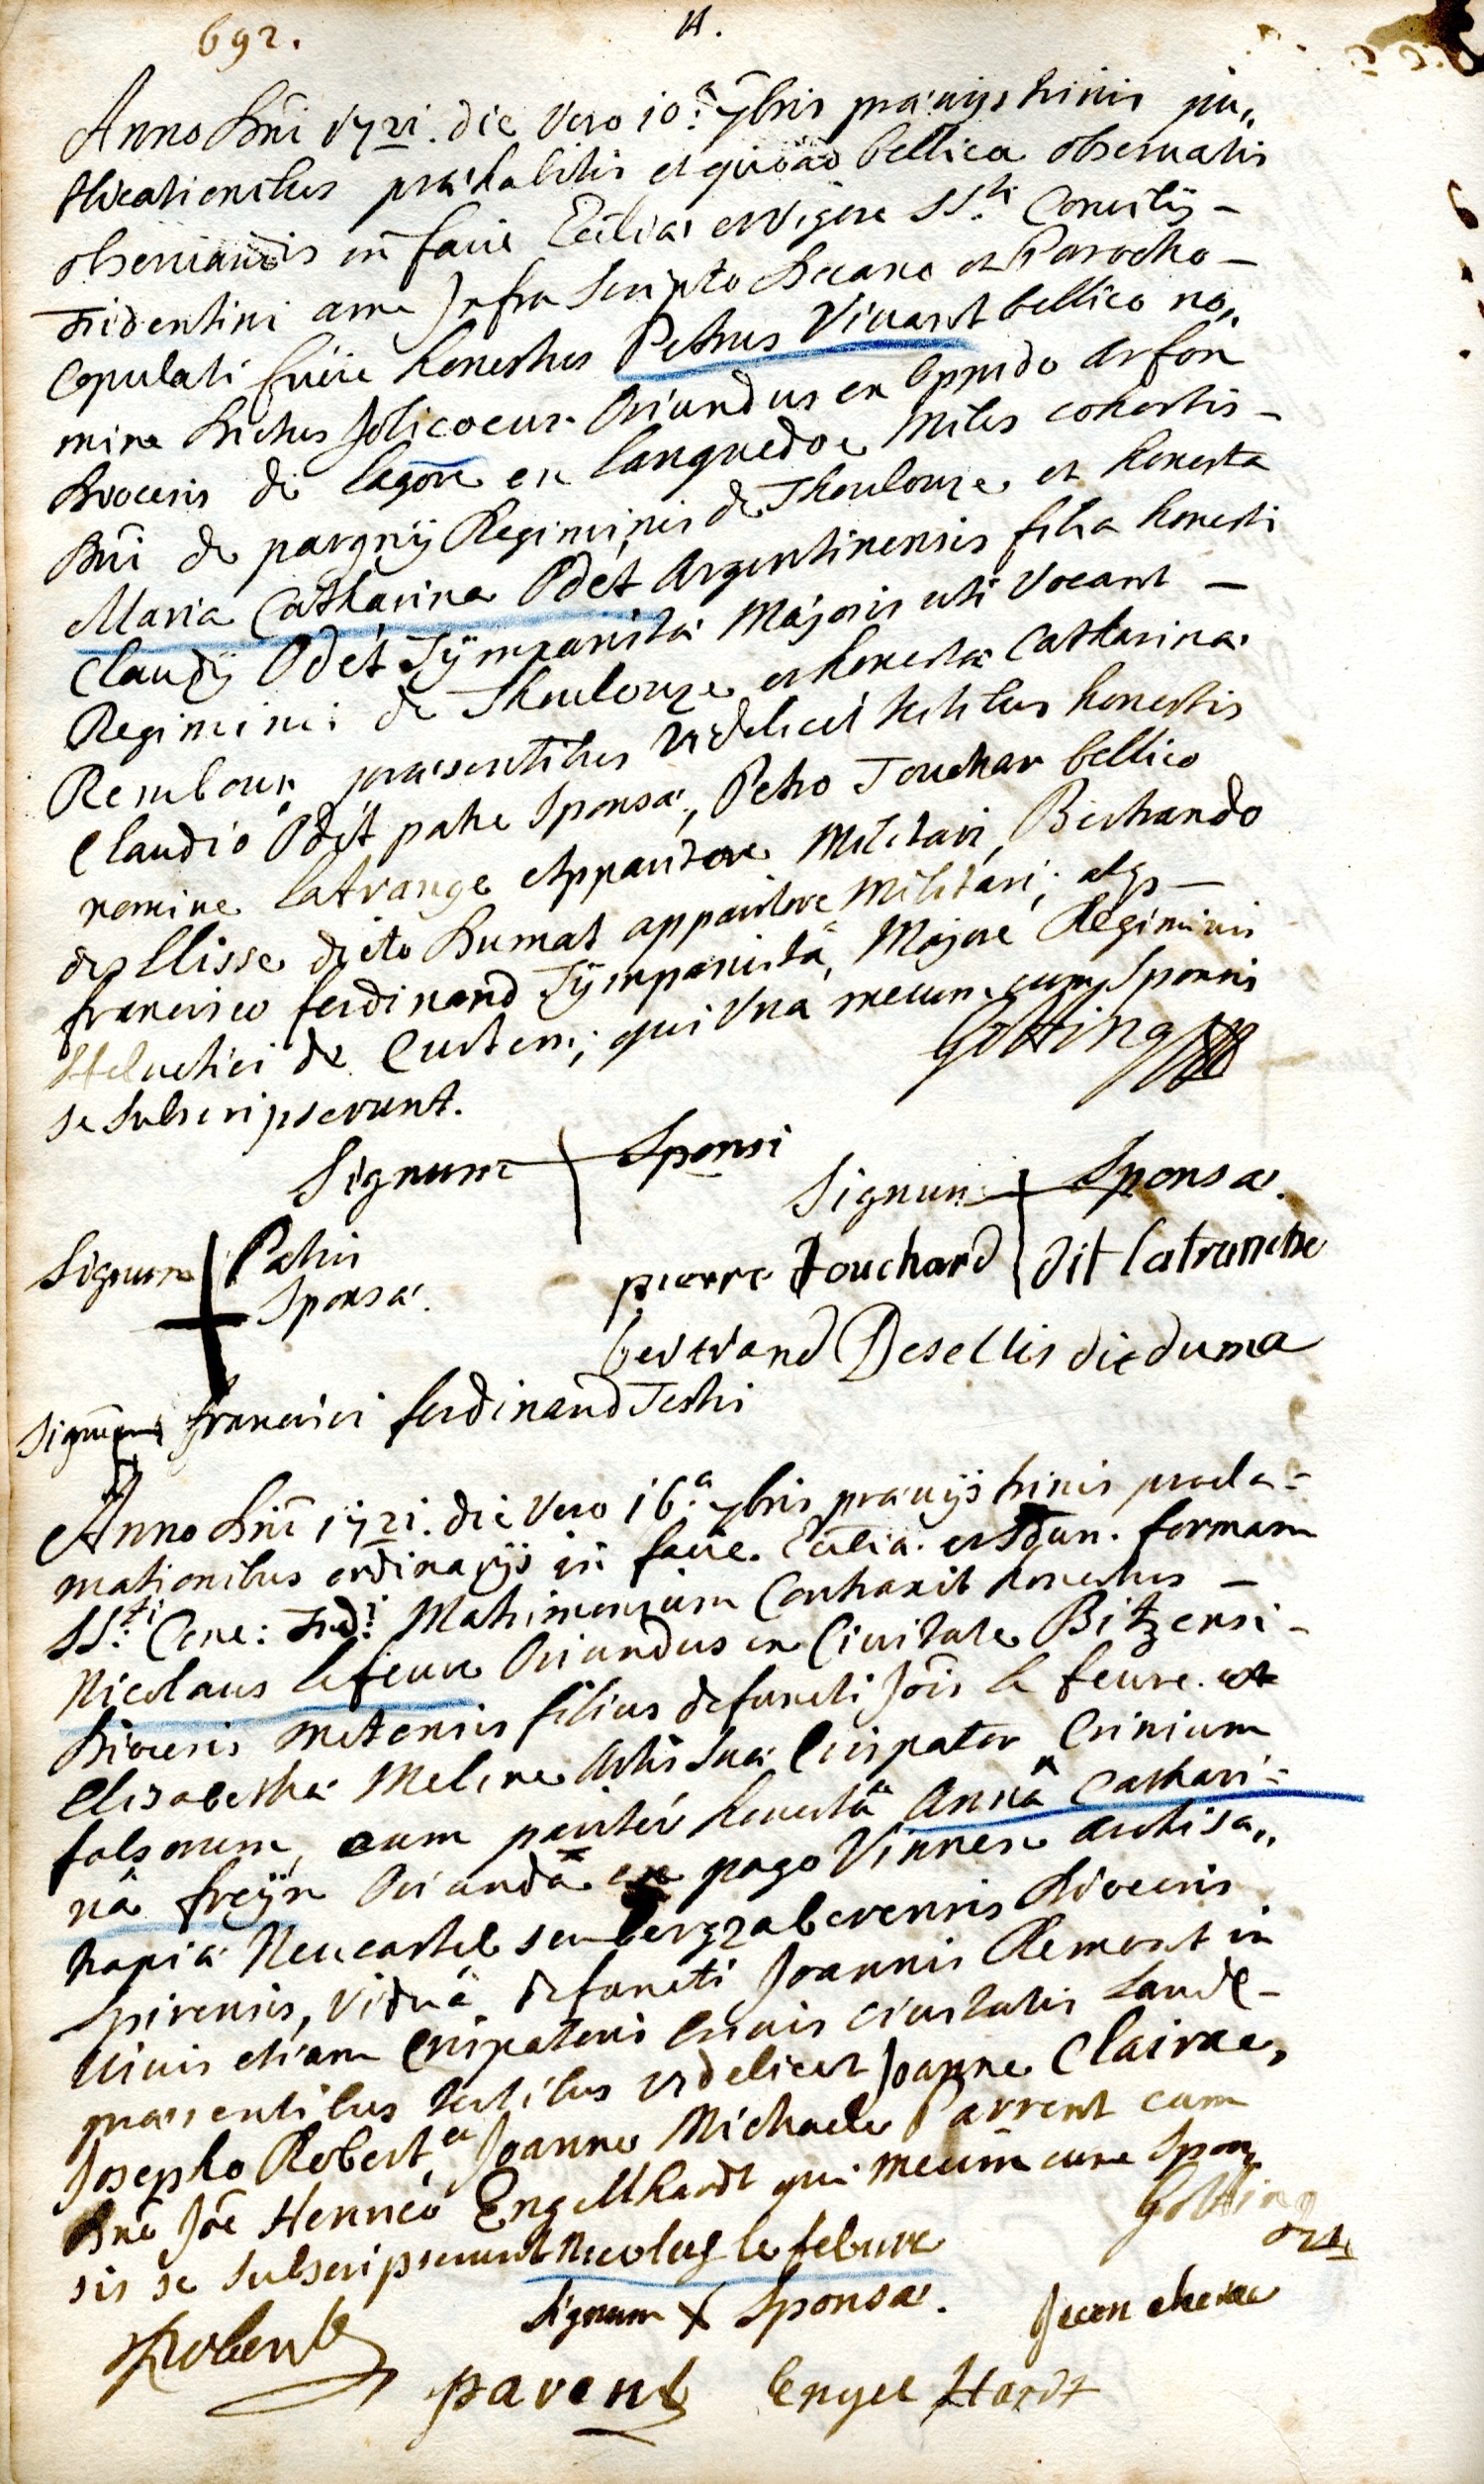 692.
A.
Anno Dnī 1721. die Vero 10.ª 7bris præviis trinis pu„
blicationibus præhabitis et quoad bellica observatis
observandis in facie Eccliæ et vigore SS.ti Concilÿ –
Tridentini a me Infra Scripto Decano et Parocho –
Copulati fuere honestus Petrus Vivant bellico no„
mine dictus Jolicoeur Oriundus ex oppido arfon
Diocesis de Lagore en languedoc Miles cohortis –
Dnī de pargnÿ Regiminis de Thoulouze et honesta
Maria Catharina Odet Argentinensis filia honesti
Claudÿ Odet Tÿmpanistæ Majoris uti vocant –
Regiminis de Thoulouze et honestæ Catharinæ
Rembour præsentibus videlicet testibus honestis
Claudio Odet patre Sponsæ, Petro Touchar bellico
nomine latrange Apparitore Militari, Bertrando
desllisse dicto Dumat apparitore militari; atqȝ –
francisco ferdinand Tÿmpanistâ Majore Regiminis
Helvetici de Curten; qui Una mecum cum Sponsis
se subscripserunt.
Gotting
Signum Sponsi
Signum Sponsæ.
Signum Patris
Sponsæ.
pierre touchard dit latranche
bertrand Desellis dit duma
Signum francisci ferdinand Testis
Anno Dnī 1721. die Vero 16.ª 7bris præviis trinis procla=
mationibus ordinariis in facie Eccliæ et sdum. formam
SS.ti Conc: Trid.i Matrimonium Contraxit honestus –
Nicolaus lefeure Oriundus ex Civitate Bitzensi –
Diocesis metensis filius defuncti Joīs le feure et
Elisabethæ Meline Artis suæ Crispator Crinium
falsorum, cum pariter honestâ Annâ Cathari=
nâ freÿn Oriundâ ex pago Vinnen archisa„
trapiæ Neucastel seu bergzaberensis Diocesis
Spirensis, viduâ defuncti Joannis Clement in
vivis etiam Crispatoris Civis civitatis Land –
præsentibus testibus videlicet Joanne Clairac,
Josepho Robert, et Joanne Michaele Parrent cum
Dnō Joē Henrico Engelhardt qui mecum cum Spon„
sis se subscripserunt Nicolas lefebure
Gotting
Signum X Sponsæ.
Jean clerac
Robert
parent
Engel Hardt